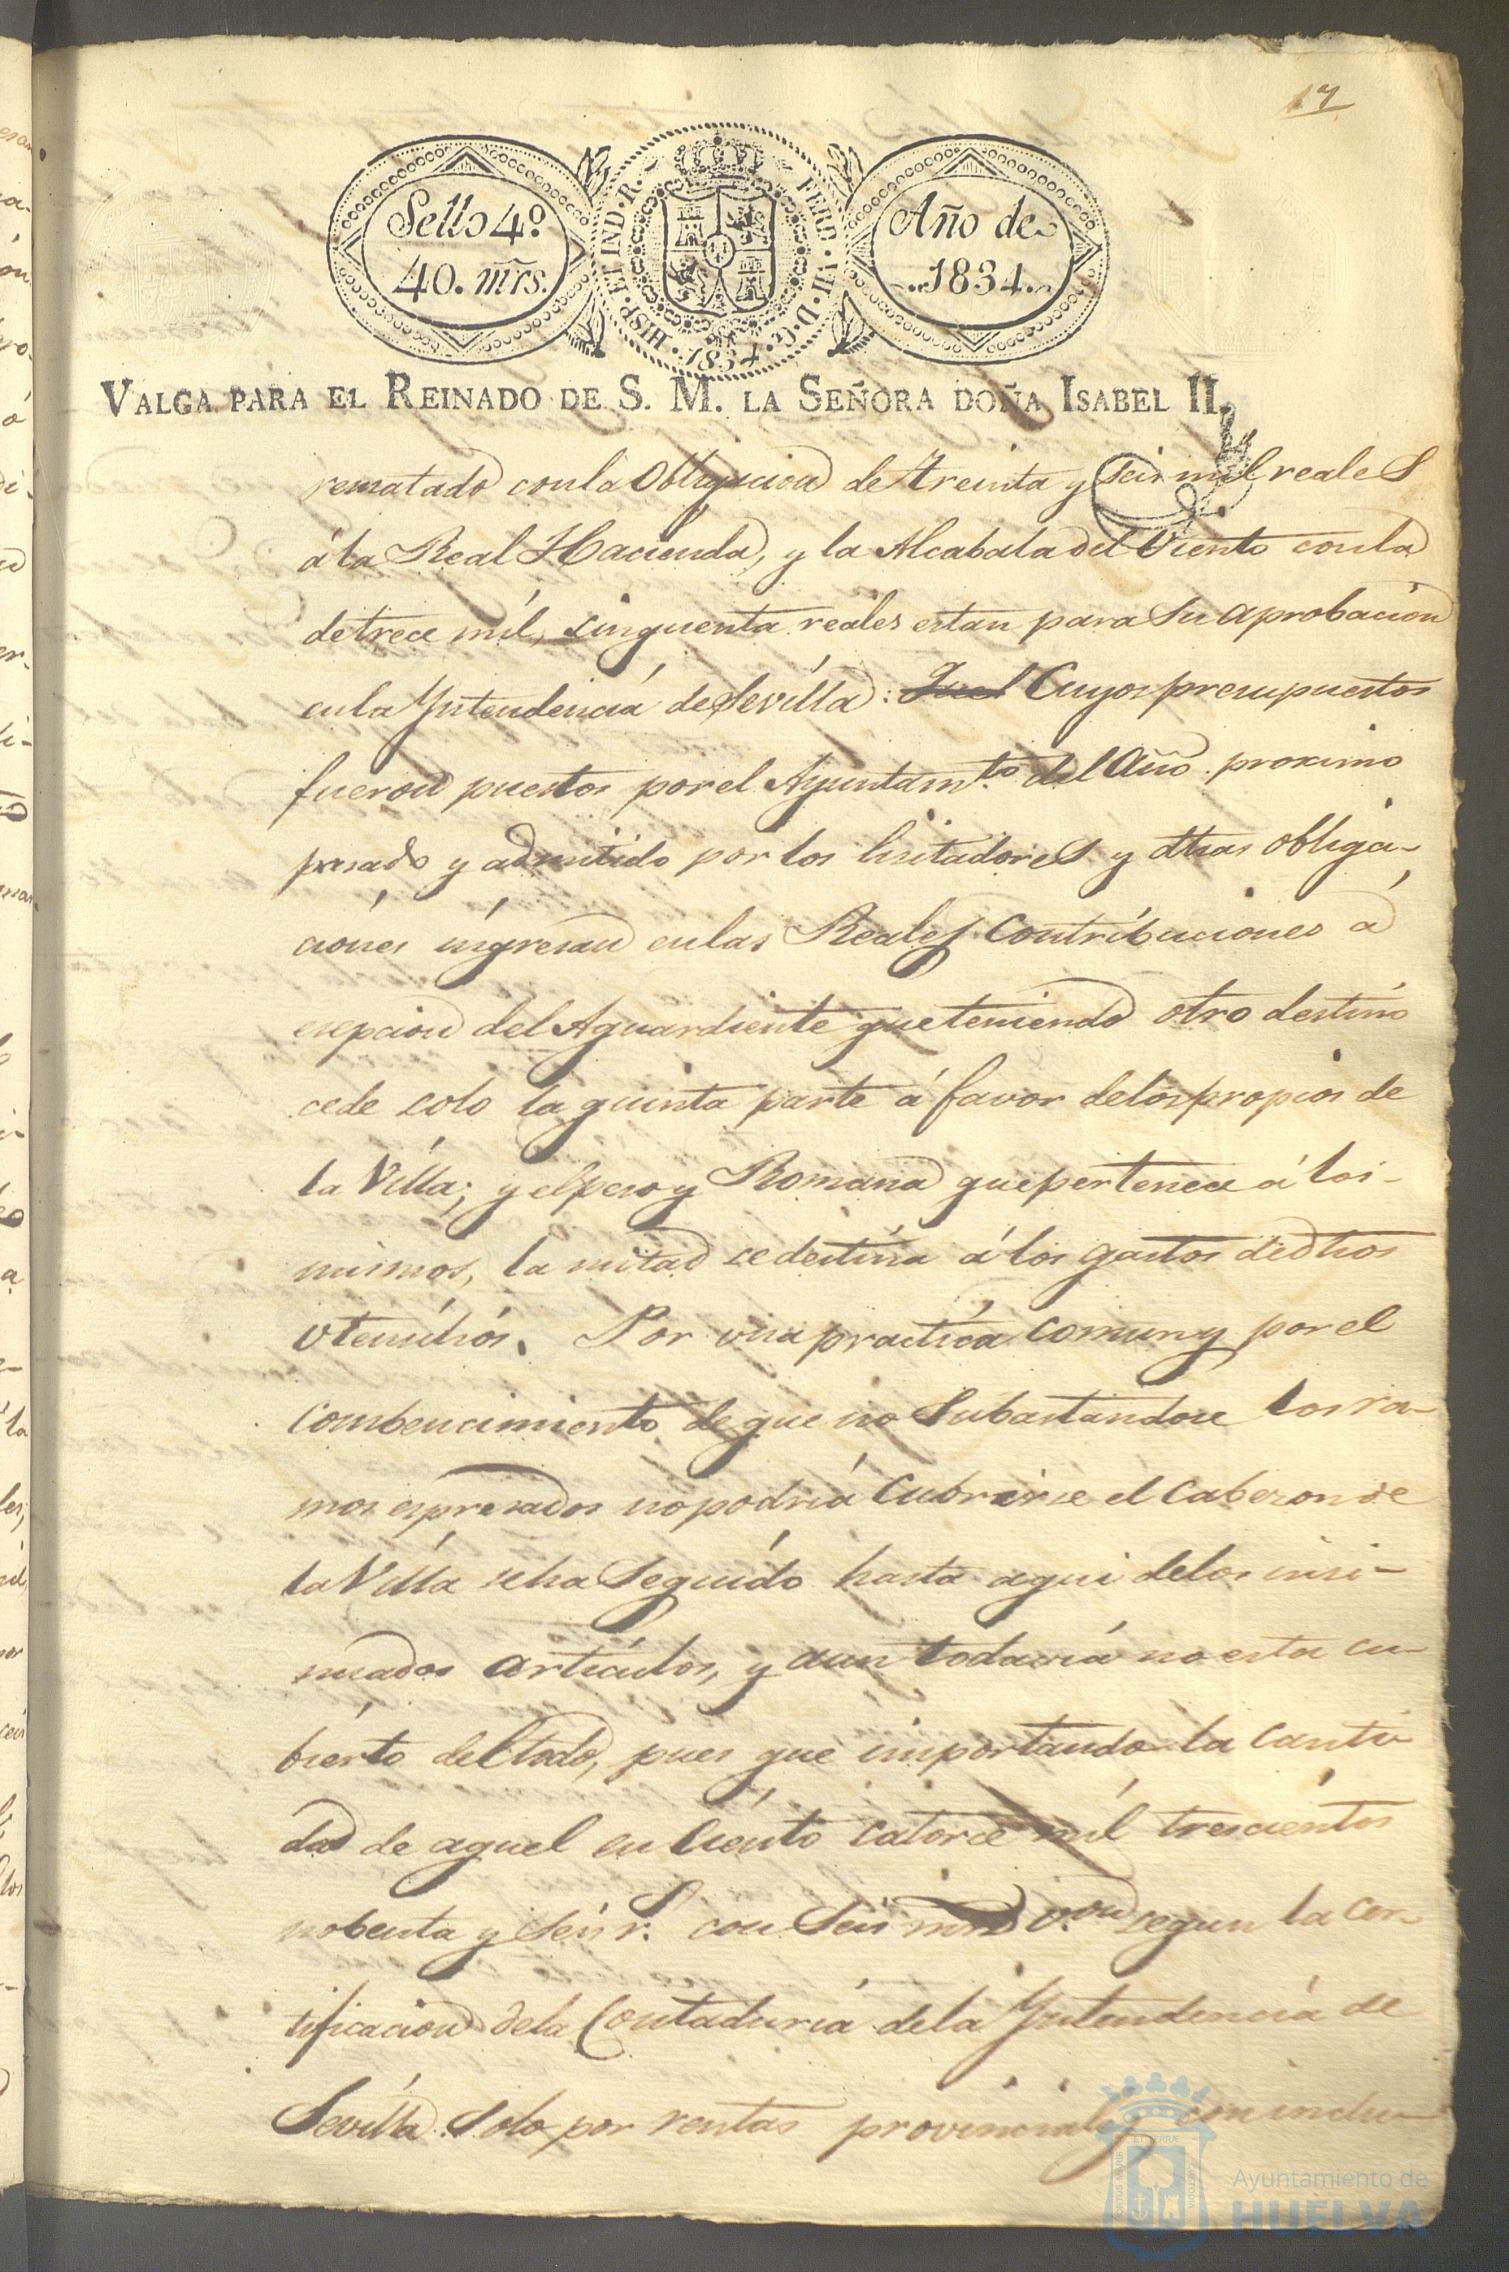 17
Sello 4.º
40. mrs.
HISP. ET IND. R. FERD. VII. D. G. 1834.
Año de
1834.
VALGA PARA EL REINADO DE S. M. LA SEÑORA DOÑA ISABEL II.
rematado con la obligacion de treinta y seis mil reales
á la Real Hacienda, y la Alcabala del Viento con la
de trece mil, cinquenta reales estan para su aprobacion
en la Yntendencia de Sevilla: Cuyos presupuestos
fueron puestos por el Ayuntamto. del Año proximo
pasado y admitido por los lisitadores y dhas obliga-
ciones ingresan en las Reales Contribuciones á
esepcion del Aguardiente que teniendo otro destino
cede solo la quinta parte á favor de los propios de
la Villa; y el peso y Romana que pertenece á los
mismos, la mitad se destina á los gastos de dhos
utensilios. Por una practica comun y por el
Combencimiento de que no Subastandose los ra-
mos espresados no podria Cubrirse el Cabezon de
la Villa se ha Seguido hasta aqui de los insi-
nuados articulos, y aun todavia no esta cu-
bierto del todo, pues que importando la Canti
dad de aquel en Ciento catorce mil trescientos
nobenta y Seis rs. con Seis mrs von segun la Cer-
tificacion de la Contaduria de la Yntendencia de
Sevilla solo por rentas provinciales, con inclu-
Ayuntamiento de
HUELVA